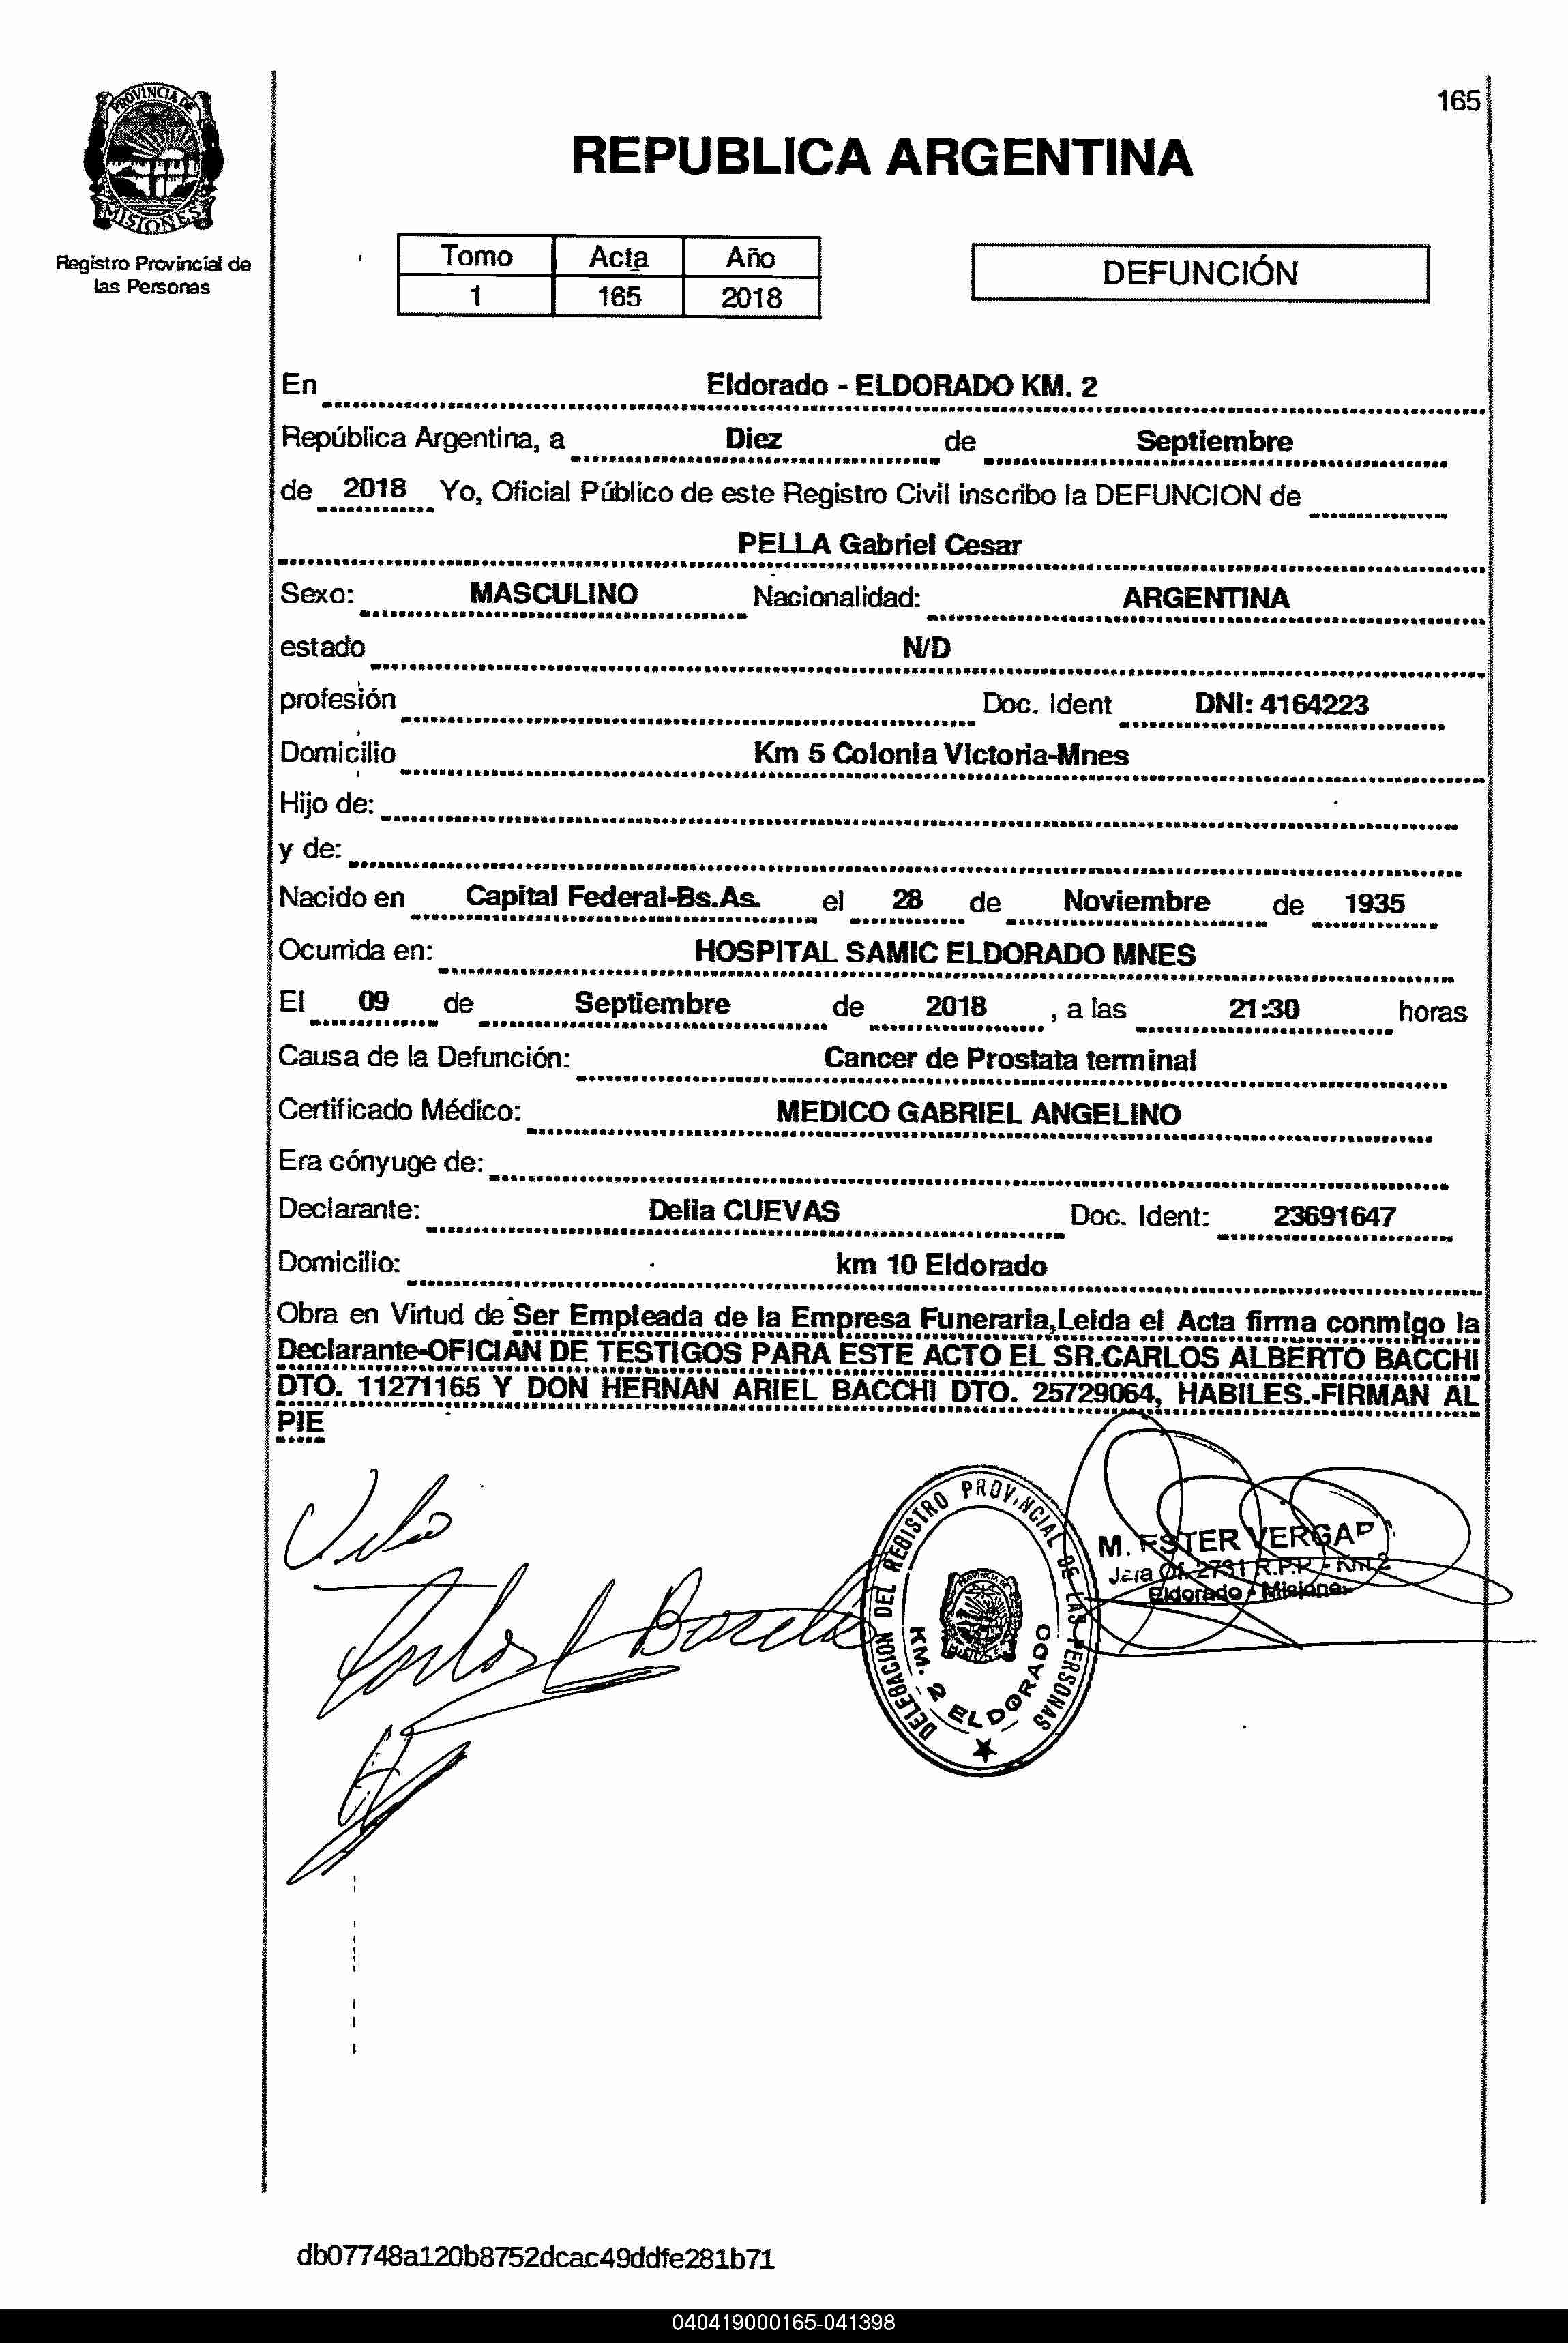 165
PROVINCIA DE
MISIONES
Registro Provincial de
las Personas
REPUBLICA ARGENTINA
Tomo Acta Año
1 165 2018
DEFUNCIÓN
En Eldorado - ELDORADO KM. 2
República Argentina, a Diez de Septiembre
de 2018 Yo, Oficial Público de este Registro Civil inscribo la DEFUNCION de
PELLA Gabriel Cesar
Sexo: MASCULINO Nacionalidad: ARGENTINA
estado N/D
profesión Doc. Ident DNI: 4164223
Domicilio Km 5 Colonia Victoria-Mnes
Hijo de:
y de:
Nacido en Capital Federal-Bs.As. el 28 de Noviembre de 1935
Ocurrida en: HOSPITAL SAMIC ELDORADO MNES
El 09 de Septiembre de 2018 , a las 21:30 horas
Causa de la Defunción: Cancer de Prostata terminal
Certificado Médico: MEDICO GABRIEL ANGELINO
Era cónyuge de:
Declarante: Delia CUEVAS Doc. Ident: 23691647
Domicilio: km 10 Eldorado
Obra en Virtud de Ser Empleada de la Empresa Funeraria,Leida el Acta firma conmigo la
Declarante-OFICIAN DE TESTIGOS PARA ESTE ACTO EL SR.CARLOS ALBERTO BACCHI
DTO. 11271165 Y DON HERNAN ARIEL BACCHI DTO. 25729064, HABILES.-FIRMAN AL
PIE
DELEGACION DEL REGISTRO PROVINCIAL DE LAS PERSONAS
KM. 2 ELDORADO
M. ESTER
Of. 2731 R.P.P - Km 2
Eldorado - Misiones
Carlos
db07748a120b8752dcac49ddfe281b71
040419000165-041398